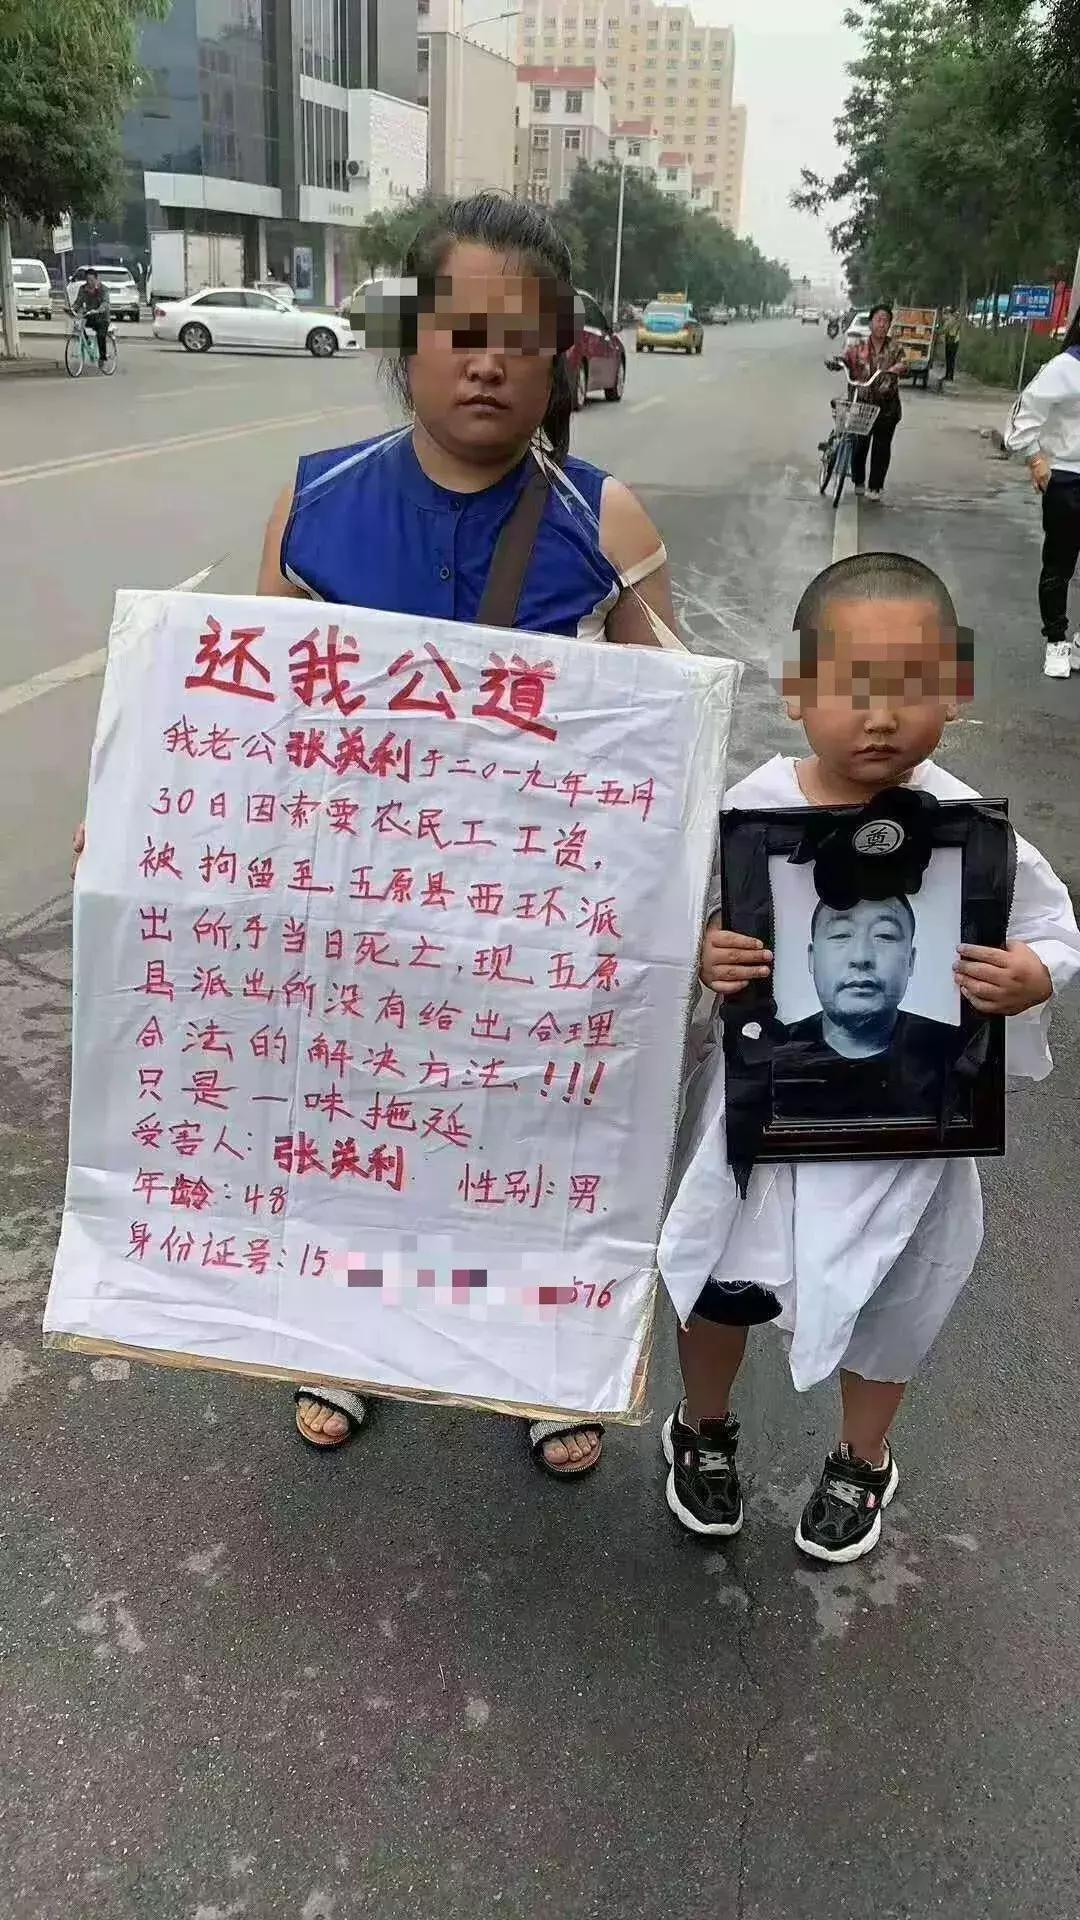 还我公道
我老公张英利于二0一九年五月
30日因索要农民工工资,
被拘留至,五原县西环派
出所,于当日死亡,现五原
县派出所没有给出合理
合法的解决方法,!!!
只是一味拖延.
受害人:张英利.
年龄:48 性别:男.
身份证号:15 576
奠